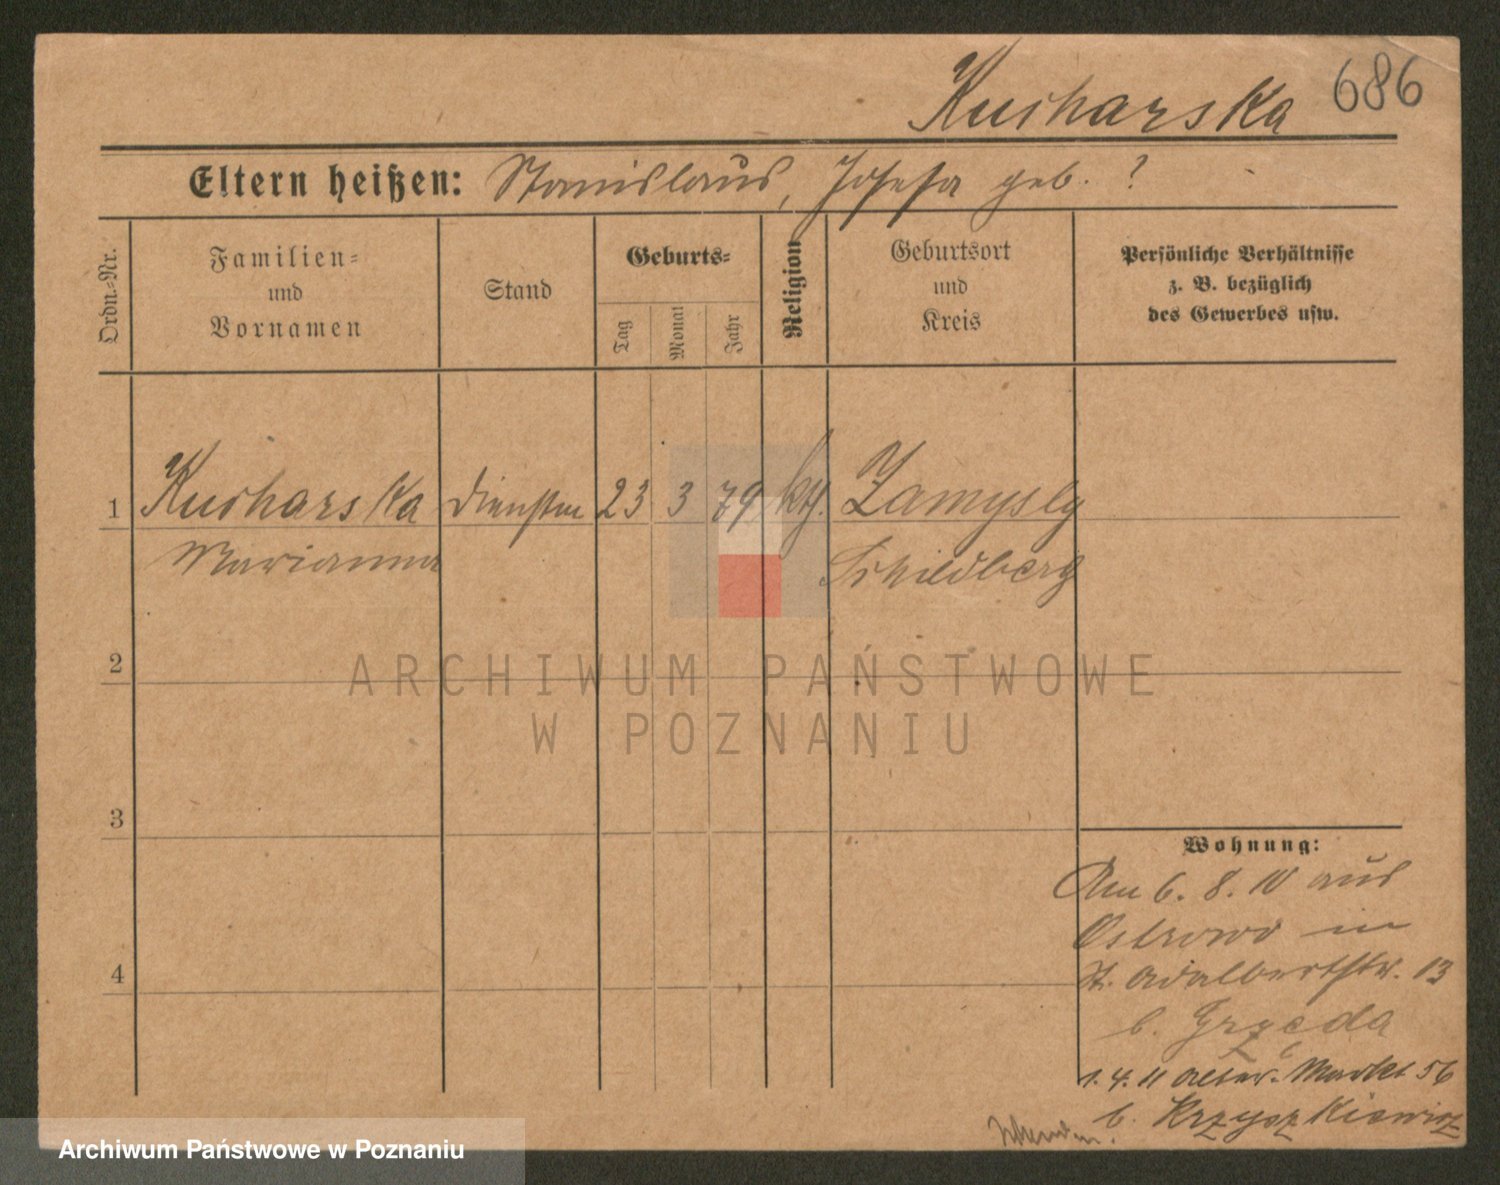 Kucharska 686
Eltern heißen: Stanislaus, Josefa geb. ?
Ordn.=Nr.
Familien=
und
Vornamen
Stand
Geburts=
Tag
Monat
Jahr
Religion
Geburtsort
und
Kreis
Persönliche Verhältnisse
z. B. bezüglich
des Gewerbes usw.
1 Kucharska 23 3 79 kth. Zamysly
Marianna Schildberg
2
ARCHIWUM PAŃSTWOWE
W POZNANIU
3
Wohnung:
Am 6. 8. 10 aus
Ostrowo in
St. Adalbertstr. 13
4
b. Grzęda
1. 4. 11 Alter Markt 56
b. Krzyszkiewicz
Archiwum Państwowe w Poznaniu